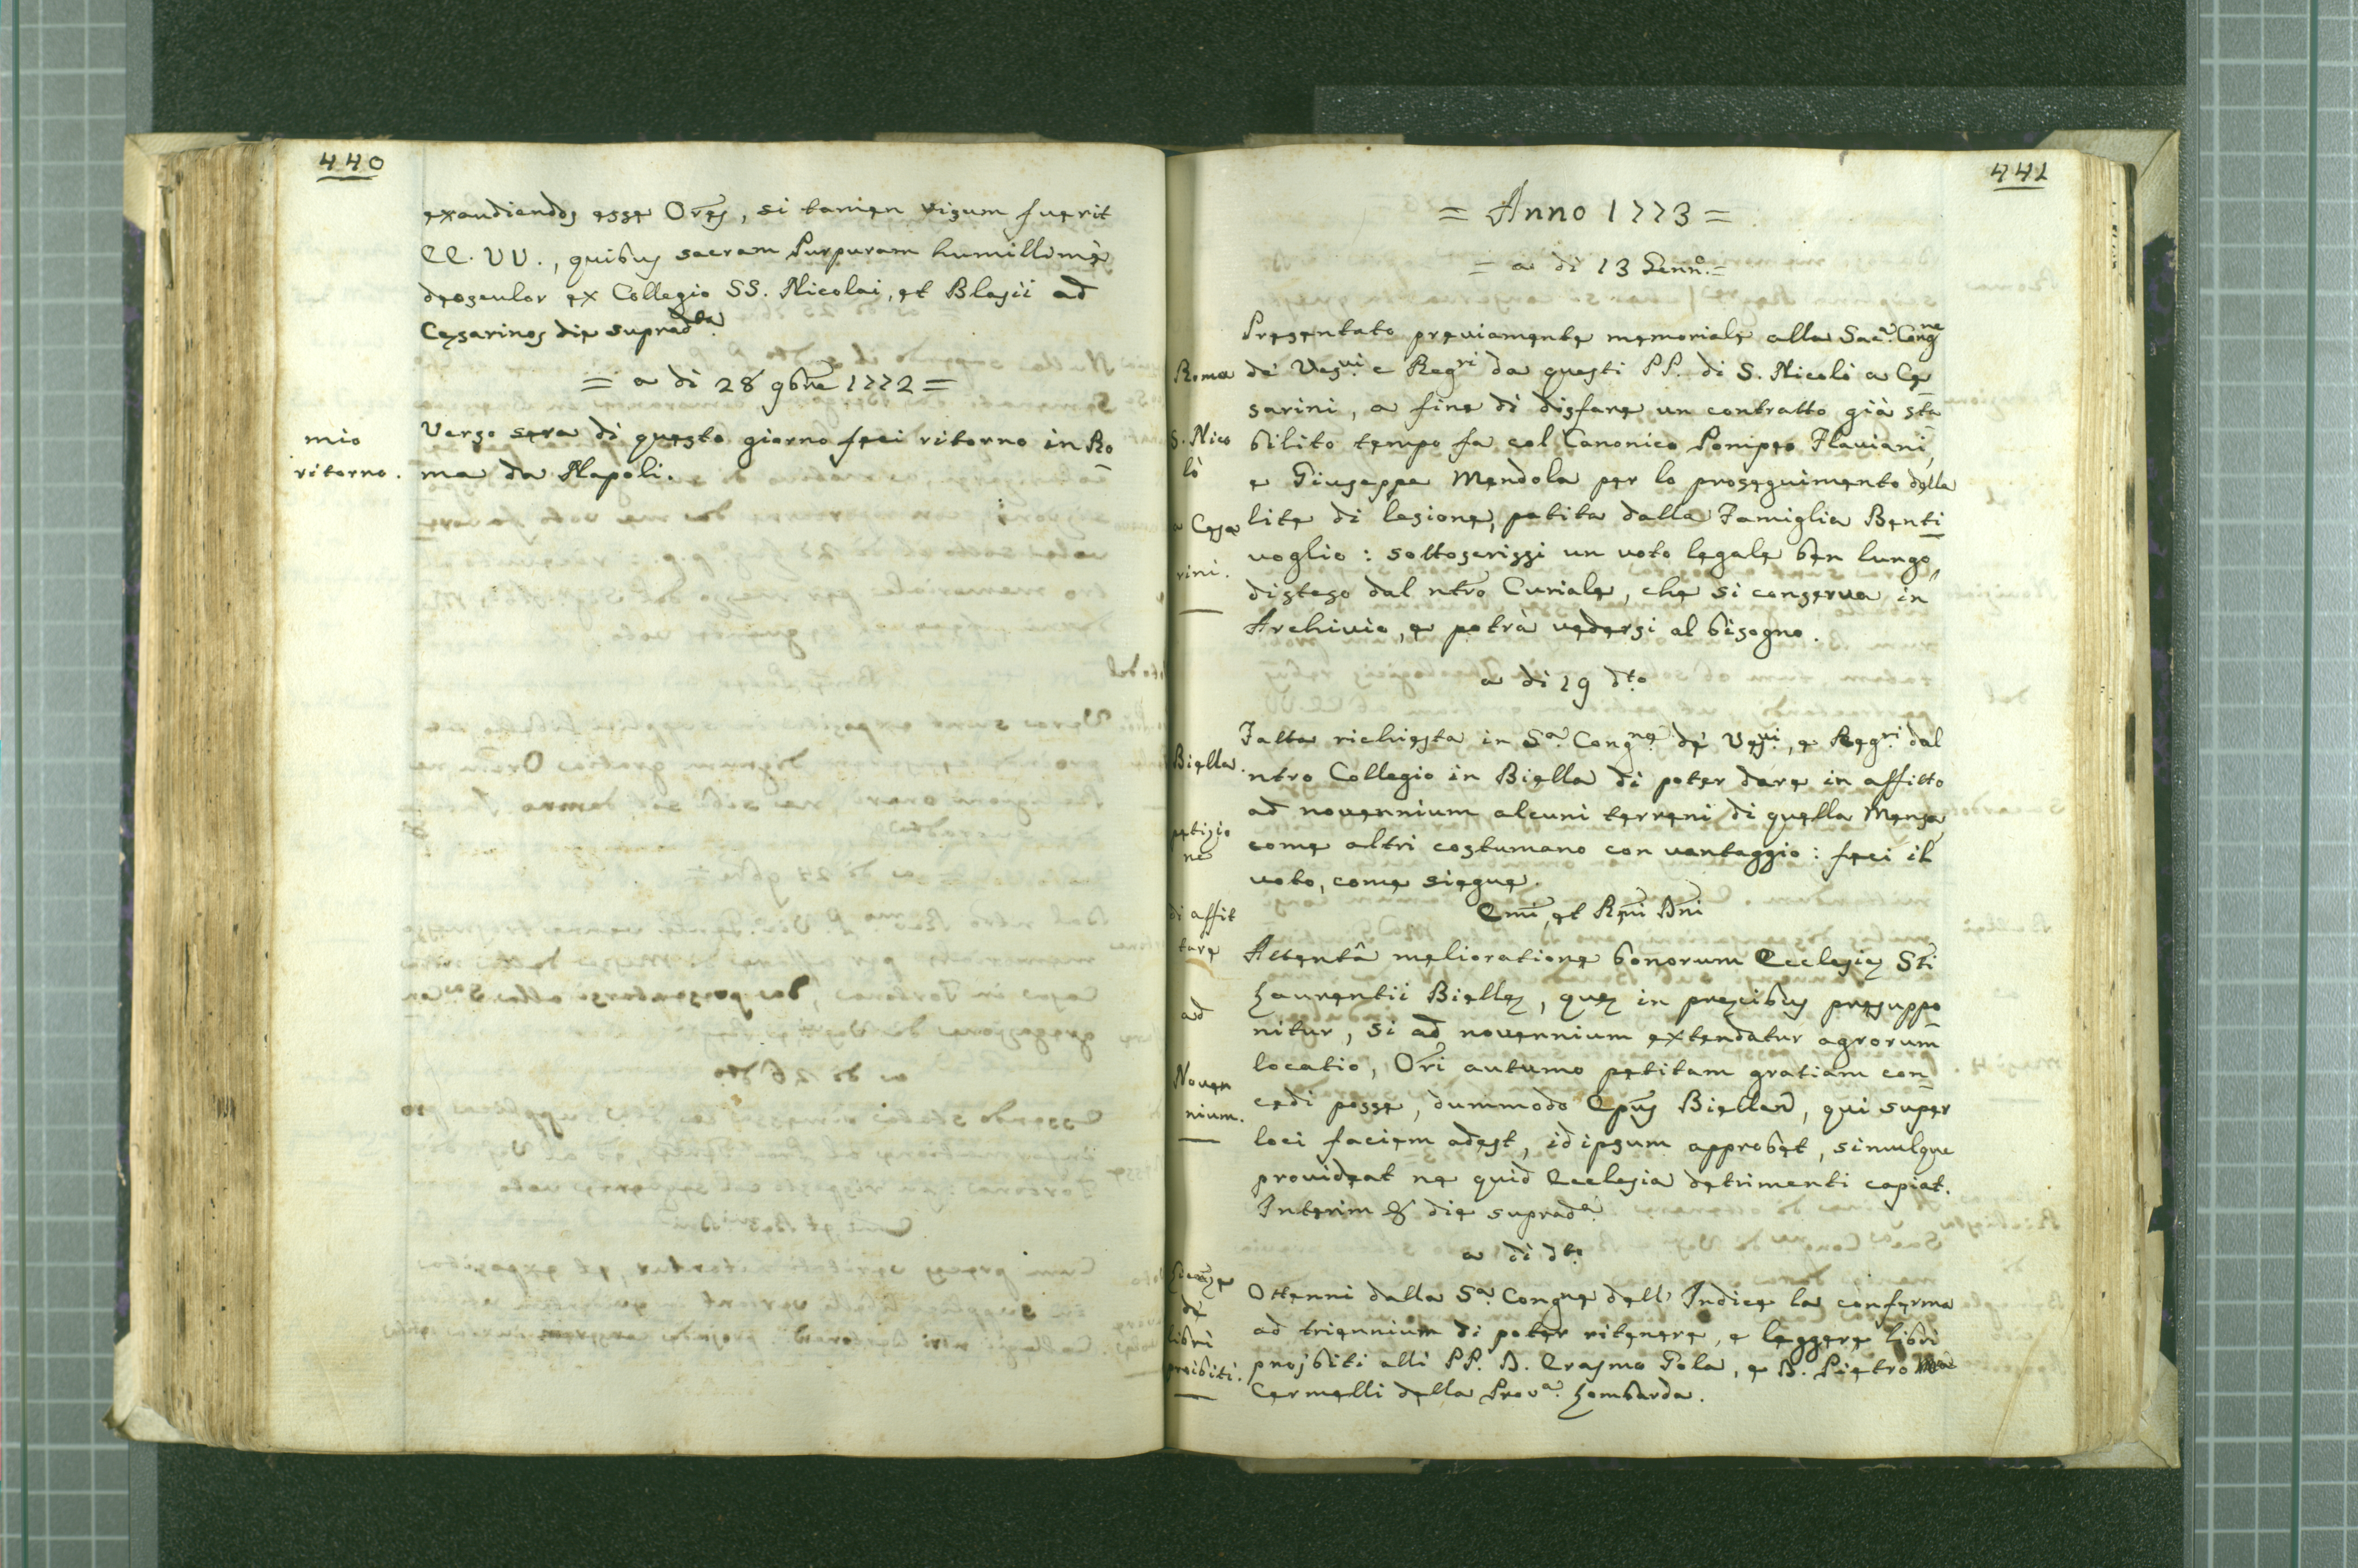 440
exaudiendos esse Ores, si tamen visum fuerit
EE. VV., quibus sacram Purpuram humillimè
deosculor ex Collegio SS. Nicolai, et Blasii ad
Cesarinos die supradta.
= a di 28 9bre 1772 =
mio
ritorno.
Verso sera di questo giorno feci ritorno in Ro
ma da Napoli.
441
= Anno 1773 =
= a di 13 Genno. =
Roma
S. Nico
lò
a Cesa
rini.
Presentato previamente memoriale alla Saca. Congne
de' Vesvi e Regri da questi PP. di S. Nicolò a Ce
sarini, a fine di disfare un contratto già sta
bilito tempo fa col Canonico Pompeo Flaviani,
e Giuseppe Mendola per lo proseguimento della
lite di lesione, patita dalla Famiglia Benti
voglio: sottoscrissi un voto legale ben lungo,
disteso dal ntro Curiale, che si conserva in
Archivio, e potrà vedersi al bisogno.
a di 19 dto
Biella.
petizio
ne
di affit
tare
ad
Noven
nium.
Fatta richiesta in Sa. Congne. de' Vesvi, e Regri dal
ntro Collegio in Biella di poter dare in affitto
ad novennium alcuni terreni di quella Mensa
come altri costumano con vantaggio: feci il
voto, come siegue.
Emi, et Rmi Dni
Attentâ melioratione bonorum Ecclesie Sti
Laurentii Bielle, que in precibus presuppo
nitur, si ad novennium extendatur agrorum
locatio, Ori autumo petitam gratiam con
cedi posse, dummodo Epus Biellan, qui super
loci faciem adest, id ipsum approbet, simulque
provideat ne quid Ecclesia detrimenti capiat.
Interim & die suprada.
a di dto
de'
libri
proibiti.
Ottenni dalla Sa. Congne dell' Indice la conferma
ad triennium di poter ritenere, e leggere libri
projbiti alli PP. D. Erasmo Tola, e D. Pietro Ma
Cermelli della Prova. Lombarda.